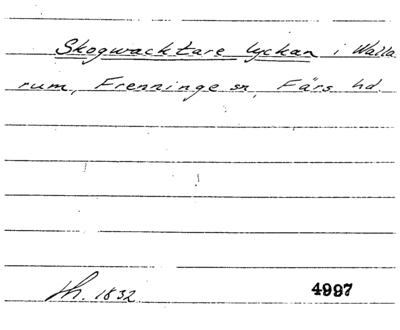 Skogwacktare lyckan i Walla
rum, Frenninge sn, Färs hd.
lh. 1832 4997